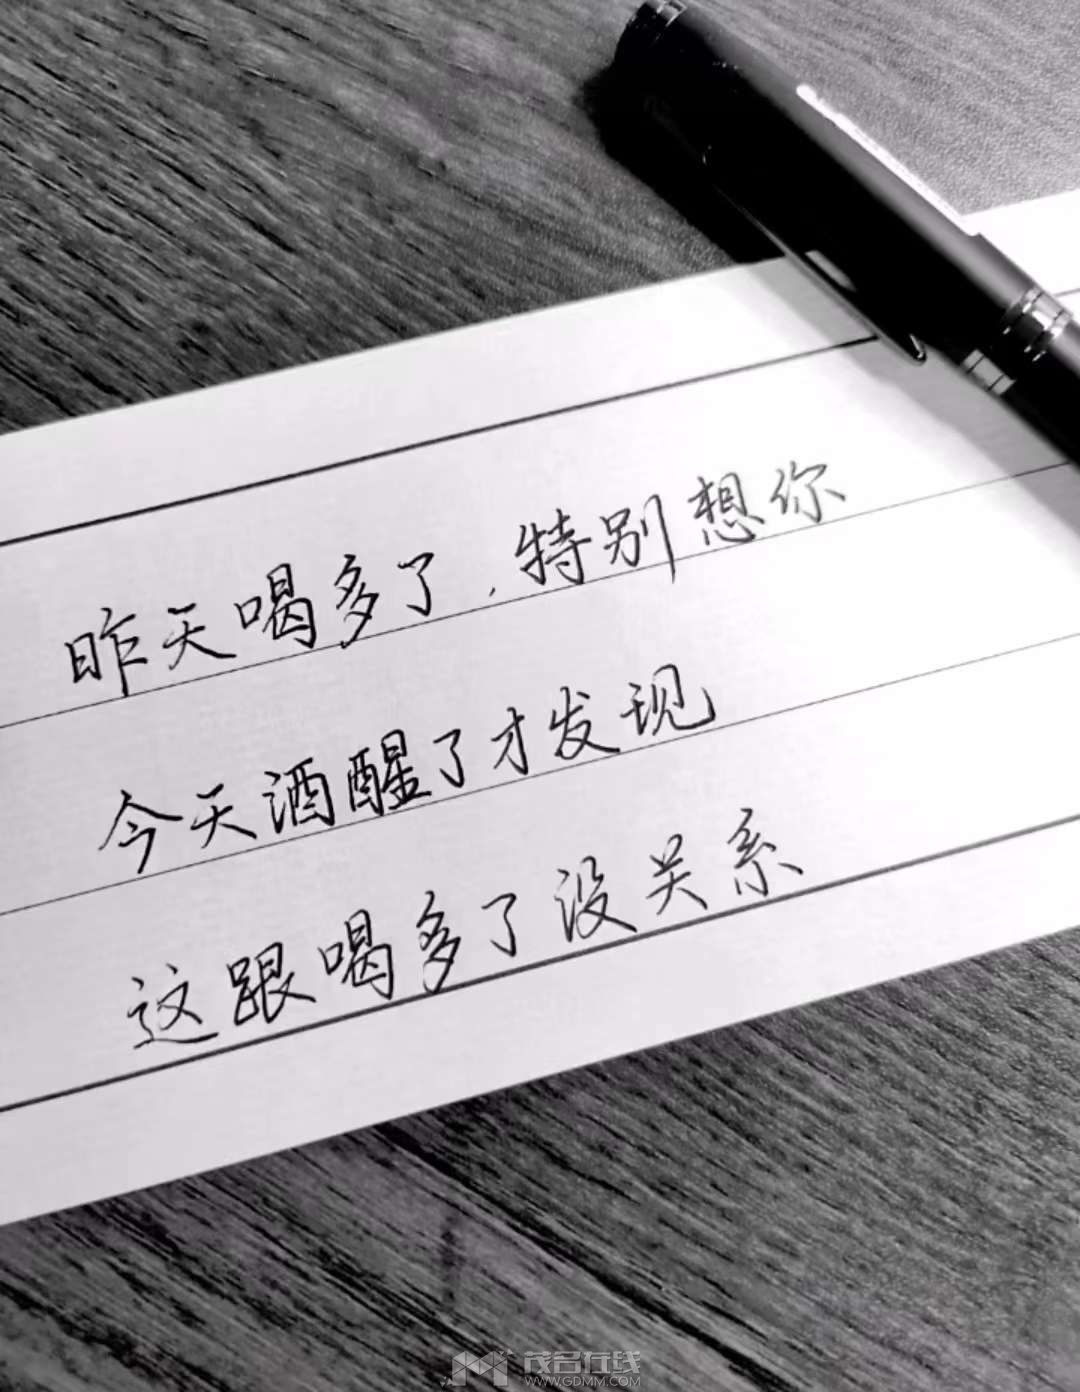 昨天喝多了,特别想你
今天酒醒了才发现
这跟喝多了没关系
茂名在线
WWW.GDMM.COM